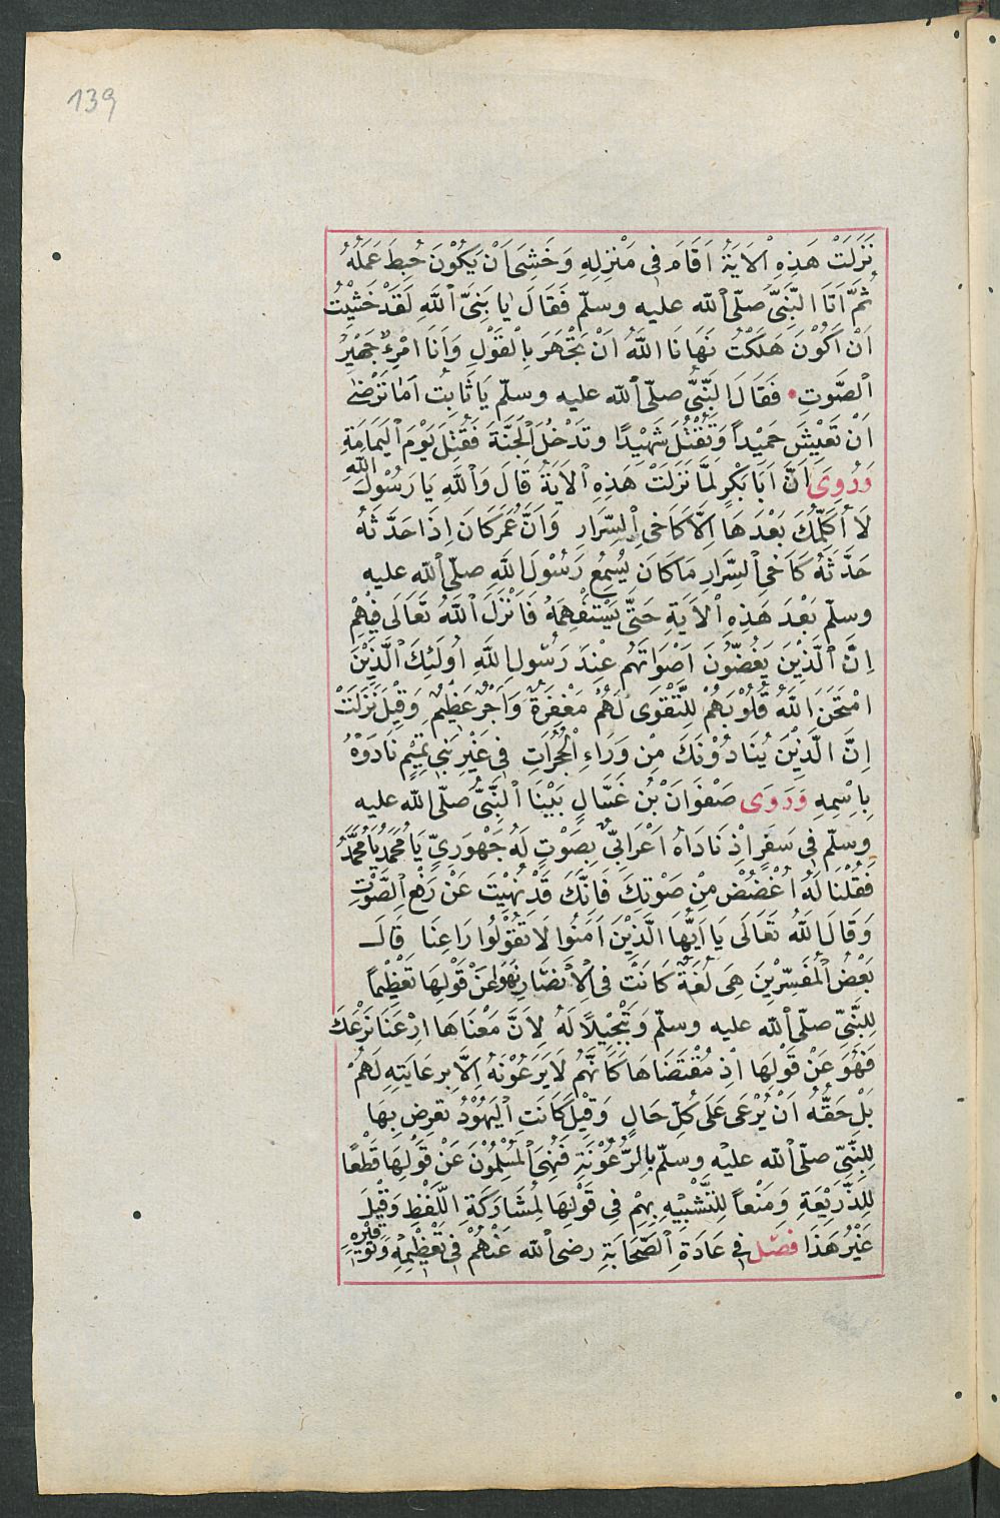 139
نَزَلَتْ هَذِهِ الْاَيَةُ اَقَامَ فِى مَنْزِلِهِ وَخَشِىَ اَنْ يَكُوْنَ حَبِطَ عَمَلُهُ
ثُمَّ اَتَا النَّبِىَّ صلّى الله عليه وسلّم فَقَالَ يَا نَبِىَّ اللَّهِ لَقَدْ خَشِيْتُ
اَنْ اَكُوْنَ هَلَكْتُ نَهَانَا اللَّهُ اَنْ نَجْهَرَ بِالْقَوْلِ وَاَنَا امْرِءٌ جَهِيْرُ
الصَّوْتِ فَقَالَ النَّبِىُّ صلّى الله عليه وسلّم يَا ثَابِتُ اَمَا تَرْضَى
اَنْ تَعِيْشَ حَمِيْداً وَتُقْتَلَ شَهِيْدًا وتَدْخُلَ الْجَنَّةَ فَقُتِلَ يَوْمَ الْيَمَامَةِ
وَرُوِىَ اَنَّ اَبَا بَكْرٍ لَمَّا نَزَلَتْ هَذِهِ الْاَيَةُ قَالَ وَاللَّهِ يَا رَسُوْلَ اللَّهِ
لَا اُكَلِّمُكَ بَعْدَهَا اِلَّا كَاَخِى السِّرَارِ وَاَنَّ عُمَرَ كَانَ اِذَا حَدَّثَهُ
حَدَّثَهُ كَاَخِى السِّرَارِ مَا كَانَ يُسْمِعُ رَسُوْلَ اللَّهِ صلّى الله عليه
وسلّم بَعْدَ هَذِهِ الْاَيَةِ حَتَّى يَسْتَفْهِمَهُ فَاَنْزَلَ اللَّهُ تَعَالَى فِيْهِمْ
اِنَّ الَّذِيْنَ يَغُضُّوْنَ اَصْوَاتَهُم عِنْدَ رَسُوْلِ اللَّهِ اُولَئِكَ الَّذِيْنَ
امْتَحَنَ اللَّهُ قُلُوْبَهُمْ لِلتَّقْوَى لَهُمْ مَغْفِرَةٌ وَاَجْرٌ عَظِيْمٌ وَقِيْلَ نَزَلَتْ
اِنَّ الَّذِيْنَ يُنَادُوْنَكَ مِنْ وَرَاءِ الْحُجُرَاتِ فِى غَيْرِ بَنِى تَمِيْمٍ نَادَوْهُ
بِاِسْمِهِ وَرَوَى صَفْوَانُ بْن عَسَّالٍ بَيْنَا النَّبِىُّ صلّى الله عليه
وسلّم فِى سَفَرٍ اِذْ نَادَاهُ اَعْرَابِىٌّ بِصَوْتٍ لَهُ جَهْوَرِىٍّ يَا مُحَمَّدُ يَا مُحَمَّدُ
فَقُلْنَا لَهُ اغْضُضْ مِنْ صَوْتِكَ فَاِنَّكَ قَدْ نُهِيْتَ عَنْ رَفْعِ الصَّوْتِ
وَقَالَ اللَّهُ تَعَالَى يَا اَيُّهَا الَّذِيْنَ اَمَنُوا لَا تَقُوْلُوا رَاعِنَا قَالَ
بَعْضُ الْمُفَسِّرِيْنَ هِىَ لُغَةٌ كَانَتْ فِى الْاَنْصَارِ نُهُوا عَنْ قَوْلِهَا تَعْظِيْماً
لِلنَّبِىِّ صلّى الله عليه وسلّم وَتَبْجِيْلًا لَهُ لِاَنَّ مَعْنَاهَا ارْعَنَا نَرْعَكَ
فَنُهُوَ عَنْ قَوْلِهَا اِذِ مُقْتَضَاهَا كَاَنَّهُمْ لَا يَرْعَوْنَهُ اِلَّا بِرعَايَتِهِ لَهُمْ
بَلْ حَقُّهُ اَنْ يُرْعَى عَلَى كُلِّ حَالٍ وَقِيْلَ كَانَتِ الْيَهُوْدُ تعرِض بِهَا
لِلنَّبِىِّ صلّى الله عليْه وسلّم بِالرُّعُوْنَةِ فَنُهِىَ الْمُسْلِمُوْنَ عَنْ قَوْلِهَا قَطْعًا
لِلذَّرِيْعَةِ وَمَنْعاً لِلتَّشْبِيْهِ بِهِمْ فِى قَوْلِهَا لِمُشَارَكَةِ اللَّفْظِ وَقِيْلَ
غَيْرُ هَذَا فصْل فى عَادَةِ الصَّحَابَةِ رضى الله عَنْهُمْ فِى تَعْظِيْمِهِ وَتَوْقِيْرِهِ